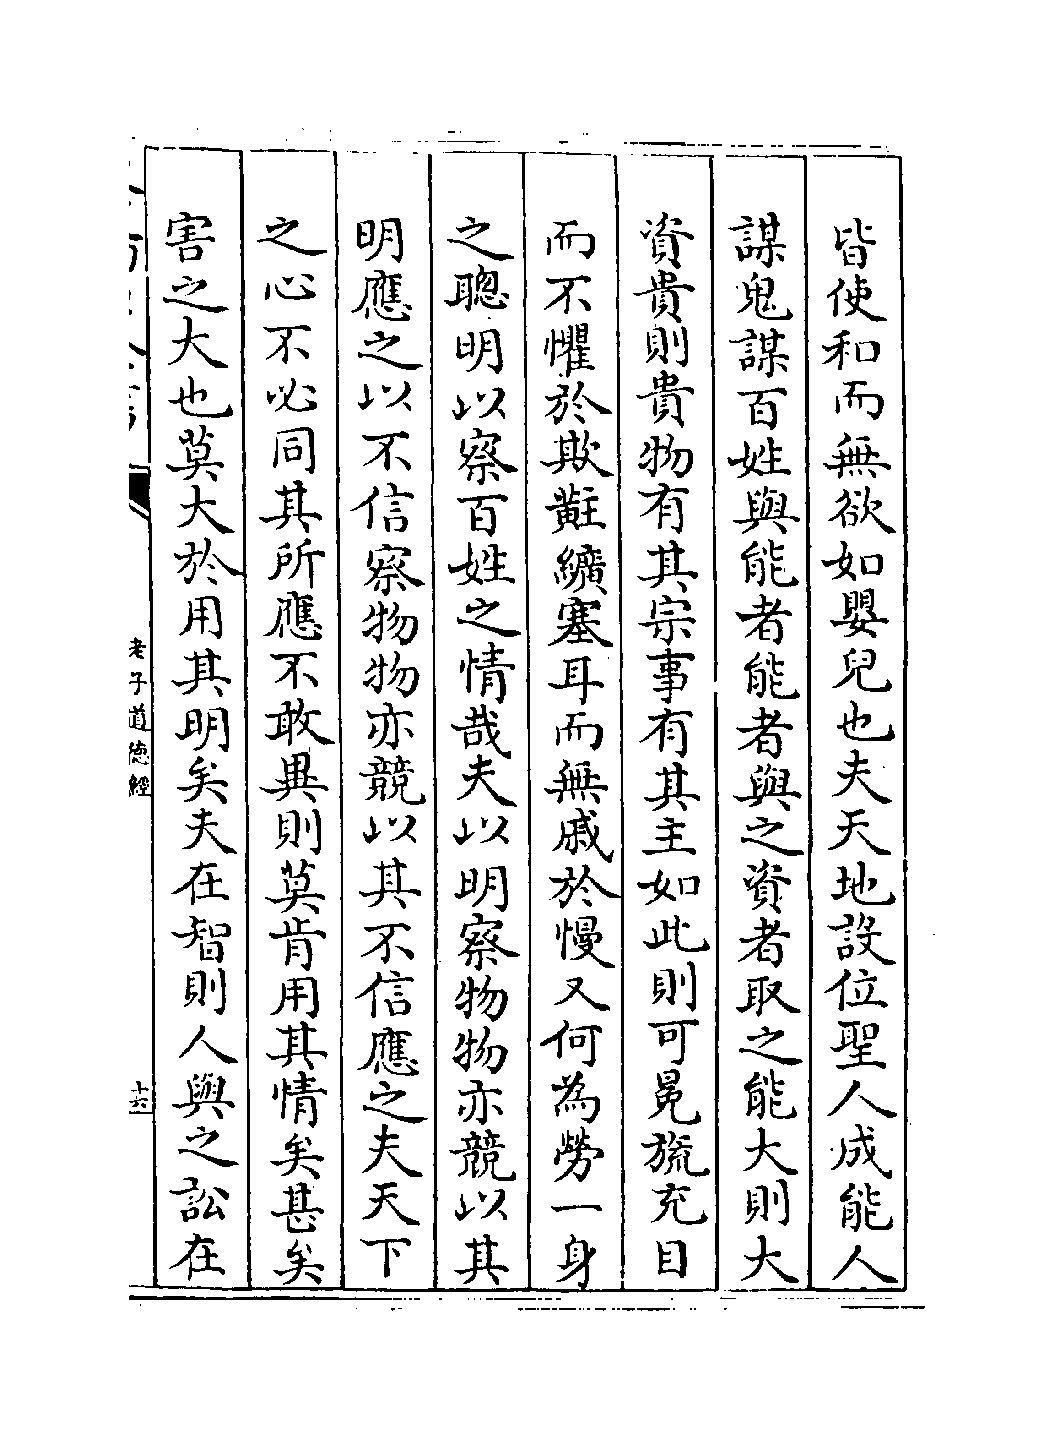 皆使和而無欲如嬰兒也夫天地設位聖人成能人
謀鬼謀百姓與能者能者與之資者取之能大則大
資貴則貴物有其宗事有其主如此則可冕旒充目
而不懼於欺黈纊塞耳而無戚於慢又何為勞一身
之聰明以察百姓之情哉夫以明察物物亦競以其
明應之以不信察物物亦競以其不信應之夫天下
之心不必同其所應不敢異則莫肯用其情矣甚矣
害之大也莫大於用其明矣夫在智則人與之訟在
老子道德經
十六